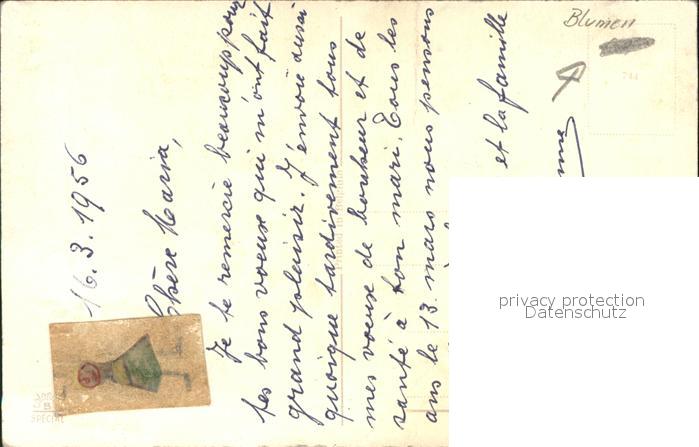 16.3.1956
Chère Maria,
Je te remercie beaucoup pour
tes bons voeux qui m'ont fait
grand plaisir. J'envoie aussi
quoique tardivement tous
mes voeux de bonheur et de
santé à ton mari. Tous les
ans le 13. mars nous pensons
et la famille
Blumen
744
Printed in
SPECIAL
privacy protection
Datenschutz